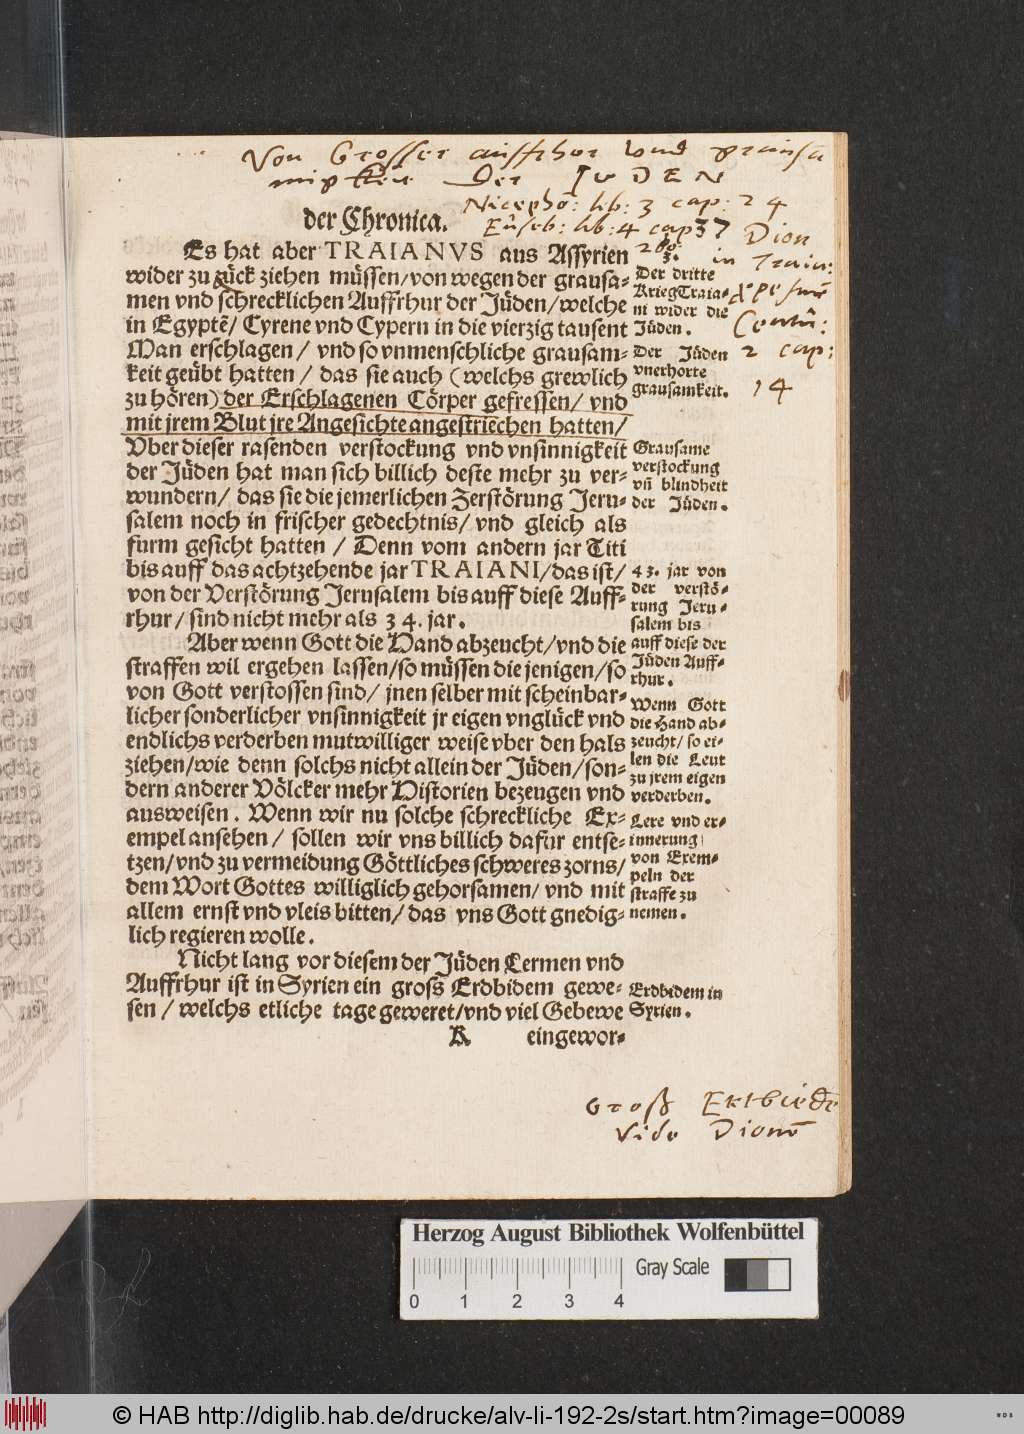 Von Grosser auffrhor vnd
Der JVDEN
Nicepho: lib: 3 cap: 24
der Chronica.
Euseb: lib: 4 cap 37 Dion
in Traia:
Es hat aber TRAIANVS aus Assyrien
wider zu rück ziehen müssen/von wegen der grausa-
men vnd schrecklichen Auffrhur der Jüden/welche
in Egyptē/ Cyrene vnd Cypern in die vierzig tausent
Man erschlagen/ vnd so vnmenschliche grausam-
keit geübt hatten / das sie auch (welchs grewlich
zu hören) der Erschlagenen Cörper gefressen/ vnd
mit jrem Blut jre Angesichte angestriechen hatten/
Vber dieser rasenden verstockung vnd vnsinnigkeit
der Jüden hat man sich billich deste mehr zu ver-
wundern/ das sie die jemerlichen Zerstörung Jeru-
salem noch in frischer gedechtnis/ vnd gleich als
furm gesicht hatten / Denn vom andern jar Titi
bis auff das achtzehende jar TRAIANI/das ist/
von der Verstörung Jerusalem bis auff diese Auff-
rhur/ sind nicht mehr als 34. jar.
Aber wenn Gott die Hand abzeucht/vnd die
straffen wil ergehen lassen/so müssen die jenigen/so
von Gott verstossen sind/ jnen selber mit scheinbar-
licher sonderlicher vnsinnigkeit jr eigen vnglück vnd
endlichs verderben mutwilliger weise vber den hals
ziehen/wie denn solchs nicht allein der Jüden/son-
dern anderer Völcker mehr Historien bezeugen vnd
ausweisen. Wenn wir nu solche schreckliche Ex-
empel ansehen/ sollen wir vns billich dafur entse-
tzen/vnd zu vermeidung Göttliches schweres zorns/
dem Wort Gottes williglich gehorsamen/ vnd mit
allem ernst vnd vleis bitten/ das vns Gott gnedig-
lich regieren wolle.
Nicht lang vor diesem der Jüden Lermen vnd
Auffrhur ist in Syrien ein gross Erdbidem gewe-
sen / welchs etliche tage geweret/vnd viel Gebewe
K eingewor-
Der dritte
Krieg Traia-
ni wider die
Jüden.
Der Jüden
vnerhorte
grausamkeit.
Centu:
2 cap:
14
Grausame
verstockung
vn̄ blindheit
der Jüden.
43. jar von
der verstö-
rung Jeru-
salem bis
auff diese der
Jüden Auff-
rhur.
Wenn Gott
die Hand ab-
zeucht/ so ei-
len die Leut
zu jrem eigen
verderben.
Lere vnd er-
innerung/
von Exem-
peln der
straffe zu
nemen.
Erdbidem in
Syrien.
Groß Ertbiedē
Vide Dionē
Herzog August Bibliothek Wolfenbüttel
Gray Scale
0 1 2 3 4
© HAB http://diglib.hab.de/drucke/alv-li-192-2s/start.htm?image=00089